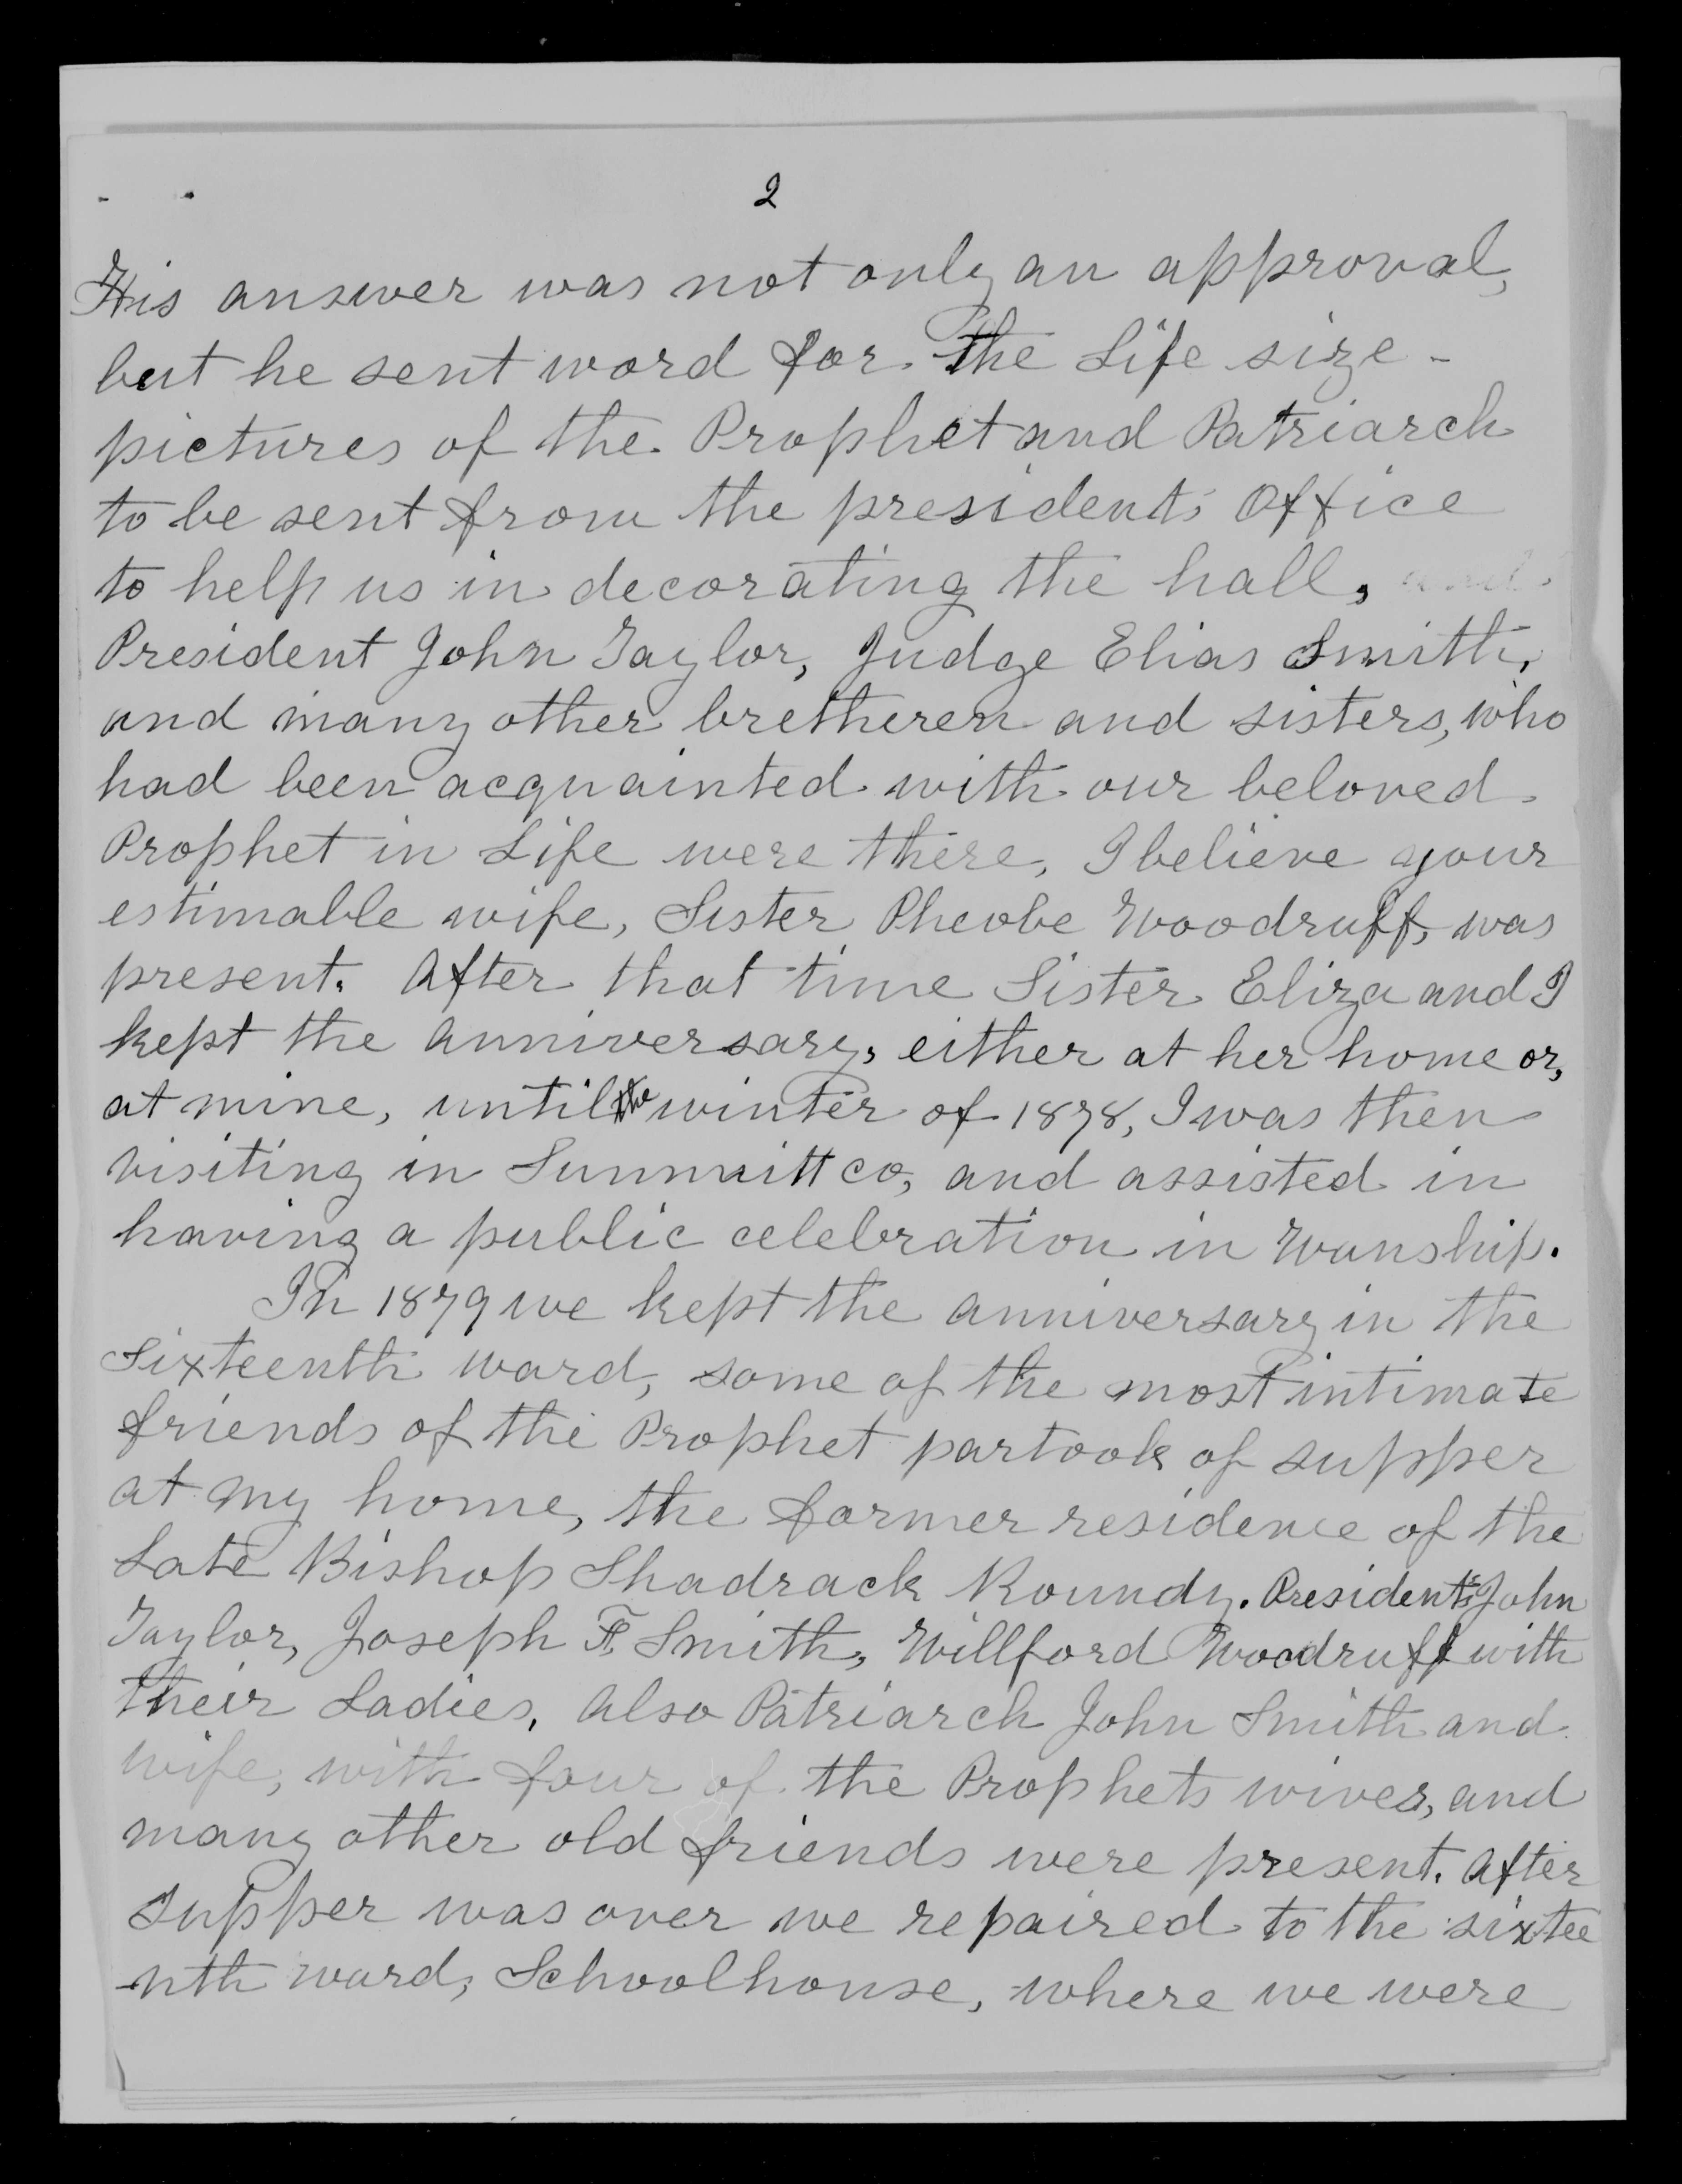 2
His answer was not only an approval,
but he sent word for the Life size -
pictures of the Prophet and Patriarch
to be sent from the presidents Office
to help us in decorating the hall, and
President John Taylor, Judge Elias Smith,
and many other bretheren and sisters, who
had been acquainted with our beloved
Prophet in Life were there, I believe your
estimable wife, Sister Pheobe Woodruff, was
present. After that time Sister Eliza and I
kept the anniversary, either at her home or,
at mine, until the winter of 1878, I was then
visiting in Summitt co, and assisted in
having a public celebration in Wanship.
In 1879 we kept the anniversary in the
Sixteenth ward, some of the most intimate
friends of the Prophet partook of supper
at my home, the former residence of the
Late Bishop Shadrack Roundy. Presidents John
Taylor, Joseph F. Smith, Willford Woodruff with
their Ladies, Also Patriarch John Smith and
wife, with four of the Prophets wives, and
many other old friends were present. After
supper was over we repaired to the sixtee
-nth ward, Schoolhouse, where we were